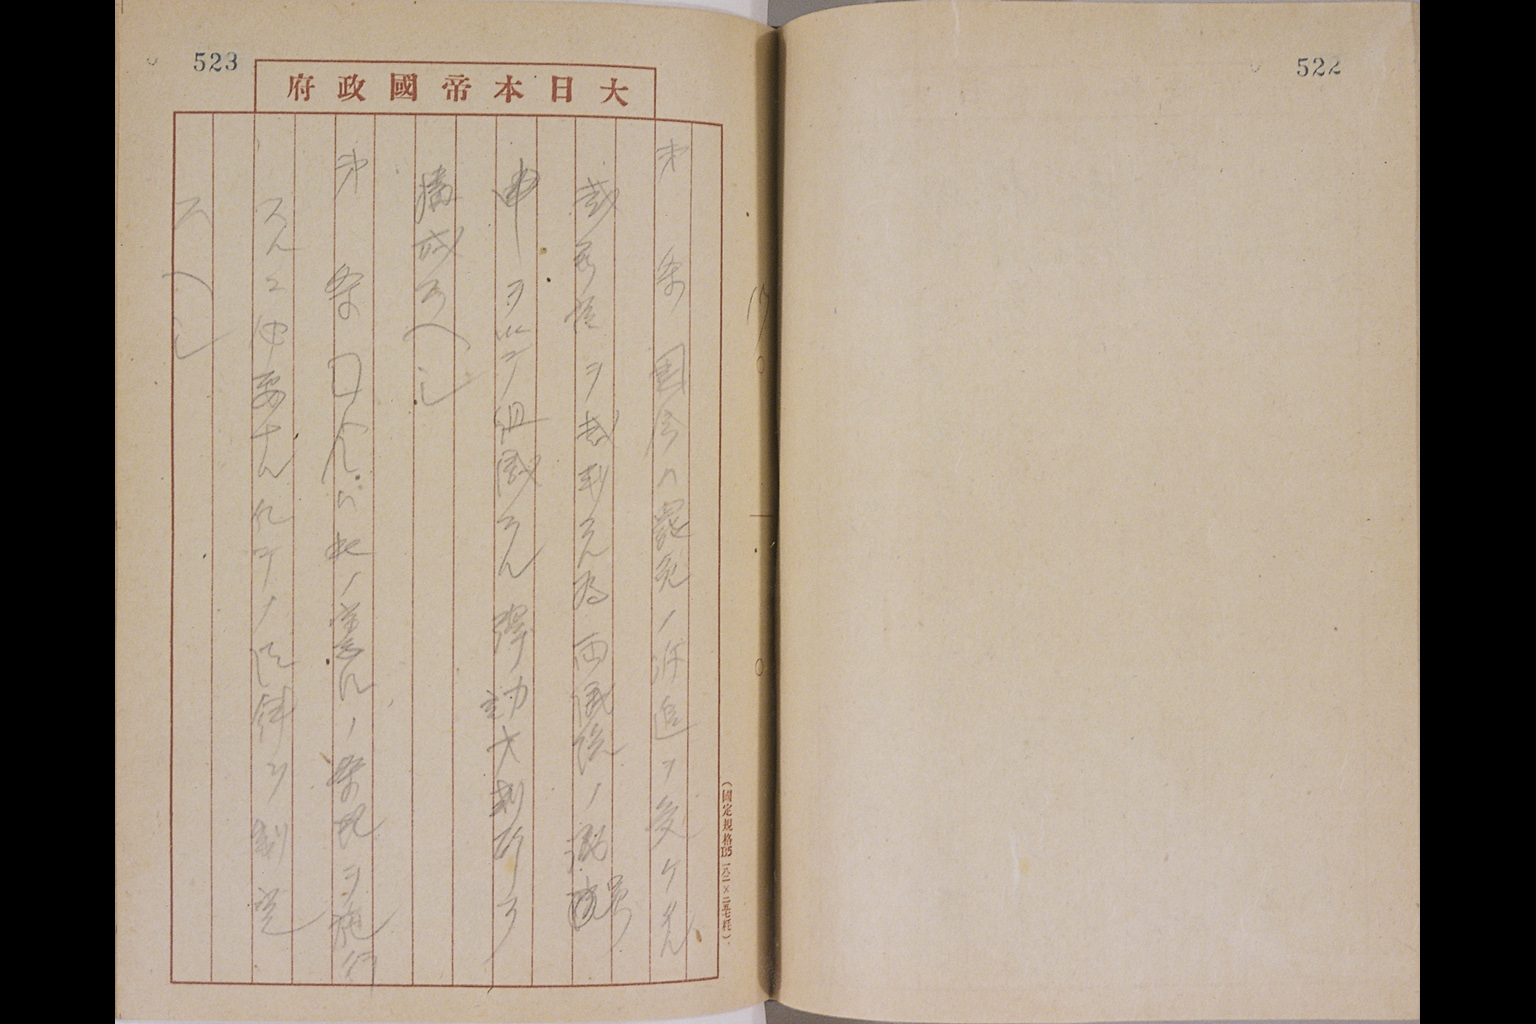 522
523
大日本帝國政府
第　条　国会ハ罷免ノ訴追ヲ受ケタ
裁判官ヲ裁判スル為両議院ノ議員
申ヲ以テ組織スル弾劾裁判所ヲ
構成スヘシ
第　条　内閣ハ此ノ憲法ノ条規ヲ施行
スルニ必要ナル凡テノ法律ヲ制定
スヘシ
(國定規格B5 一八二×二五七粍)